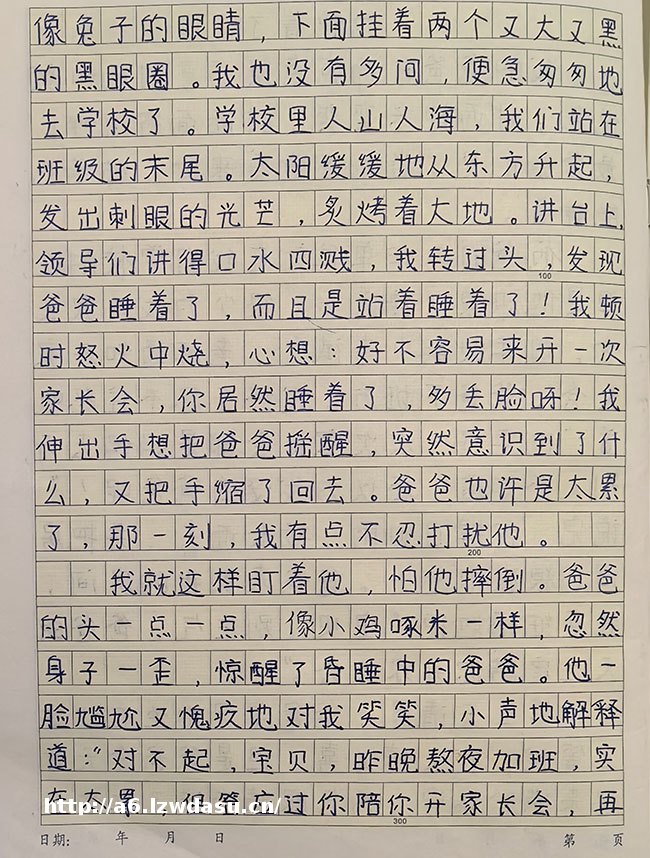 像兔子的眼睛，下面挂着两个又大又黑
的黑眼圈。我也没有多问，便急匆匆地
去学校了。学校里人山人海，我们站在
班级的末尾。太阳缓缓地从东方升起，
发出刺眼的光芒，炙烤着大地。讲台上，
领导们讲得口水四溅，我转过头，发现
100
爸爸睡着了，而且是站着睡着了！我顿
时怒火中烧，心想：好不容易来开一次
家长会，你居然睡着了，多丢脸呀！我
伸出手想把爸爸摇醒，突然意识到了什
么，又把手缩了回去。爸爸也许是太累
了，那一刻，我有点不忍打扰他。
200
我就这样盯着他，怕他摔倒。爸爸
的头一点一点，像小鸡啄米一样，忽然
身子一歪，惊醒了昏睡中的爸爸。他一
脸尴尬又愧疚地对我笑笑，小声地解释
道：“对不起，宝贝，昨晚熬夜加班，实
在太累，但答应过你陪你开家长会，再
http://a6.lzwdasu.cn/
300
日期： 年 月 日 第 页